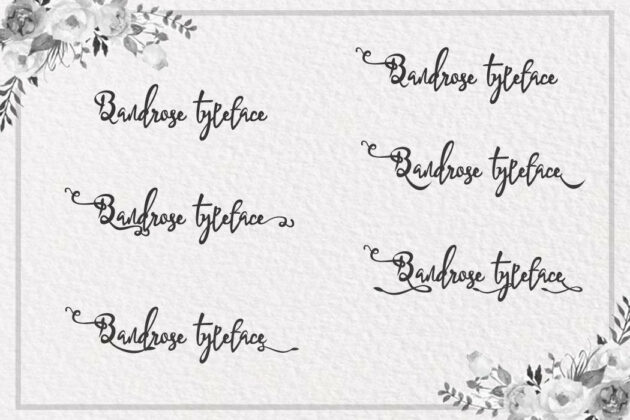 Bandrose typeface
Bandrose typeface
Bandrose typeface
Bandrose typeface
Bandrose typeface
Bandrose typeface